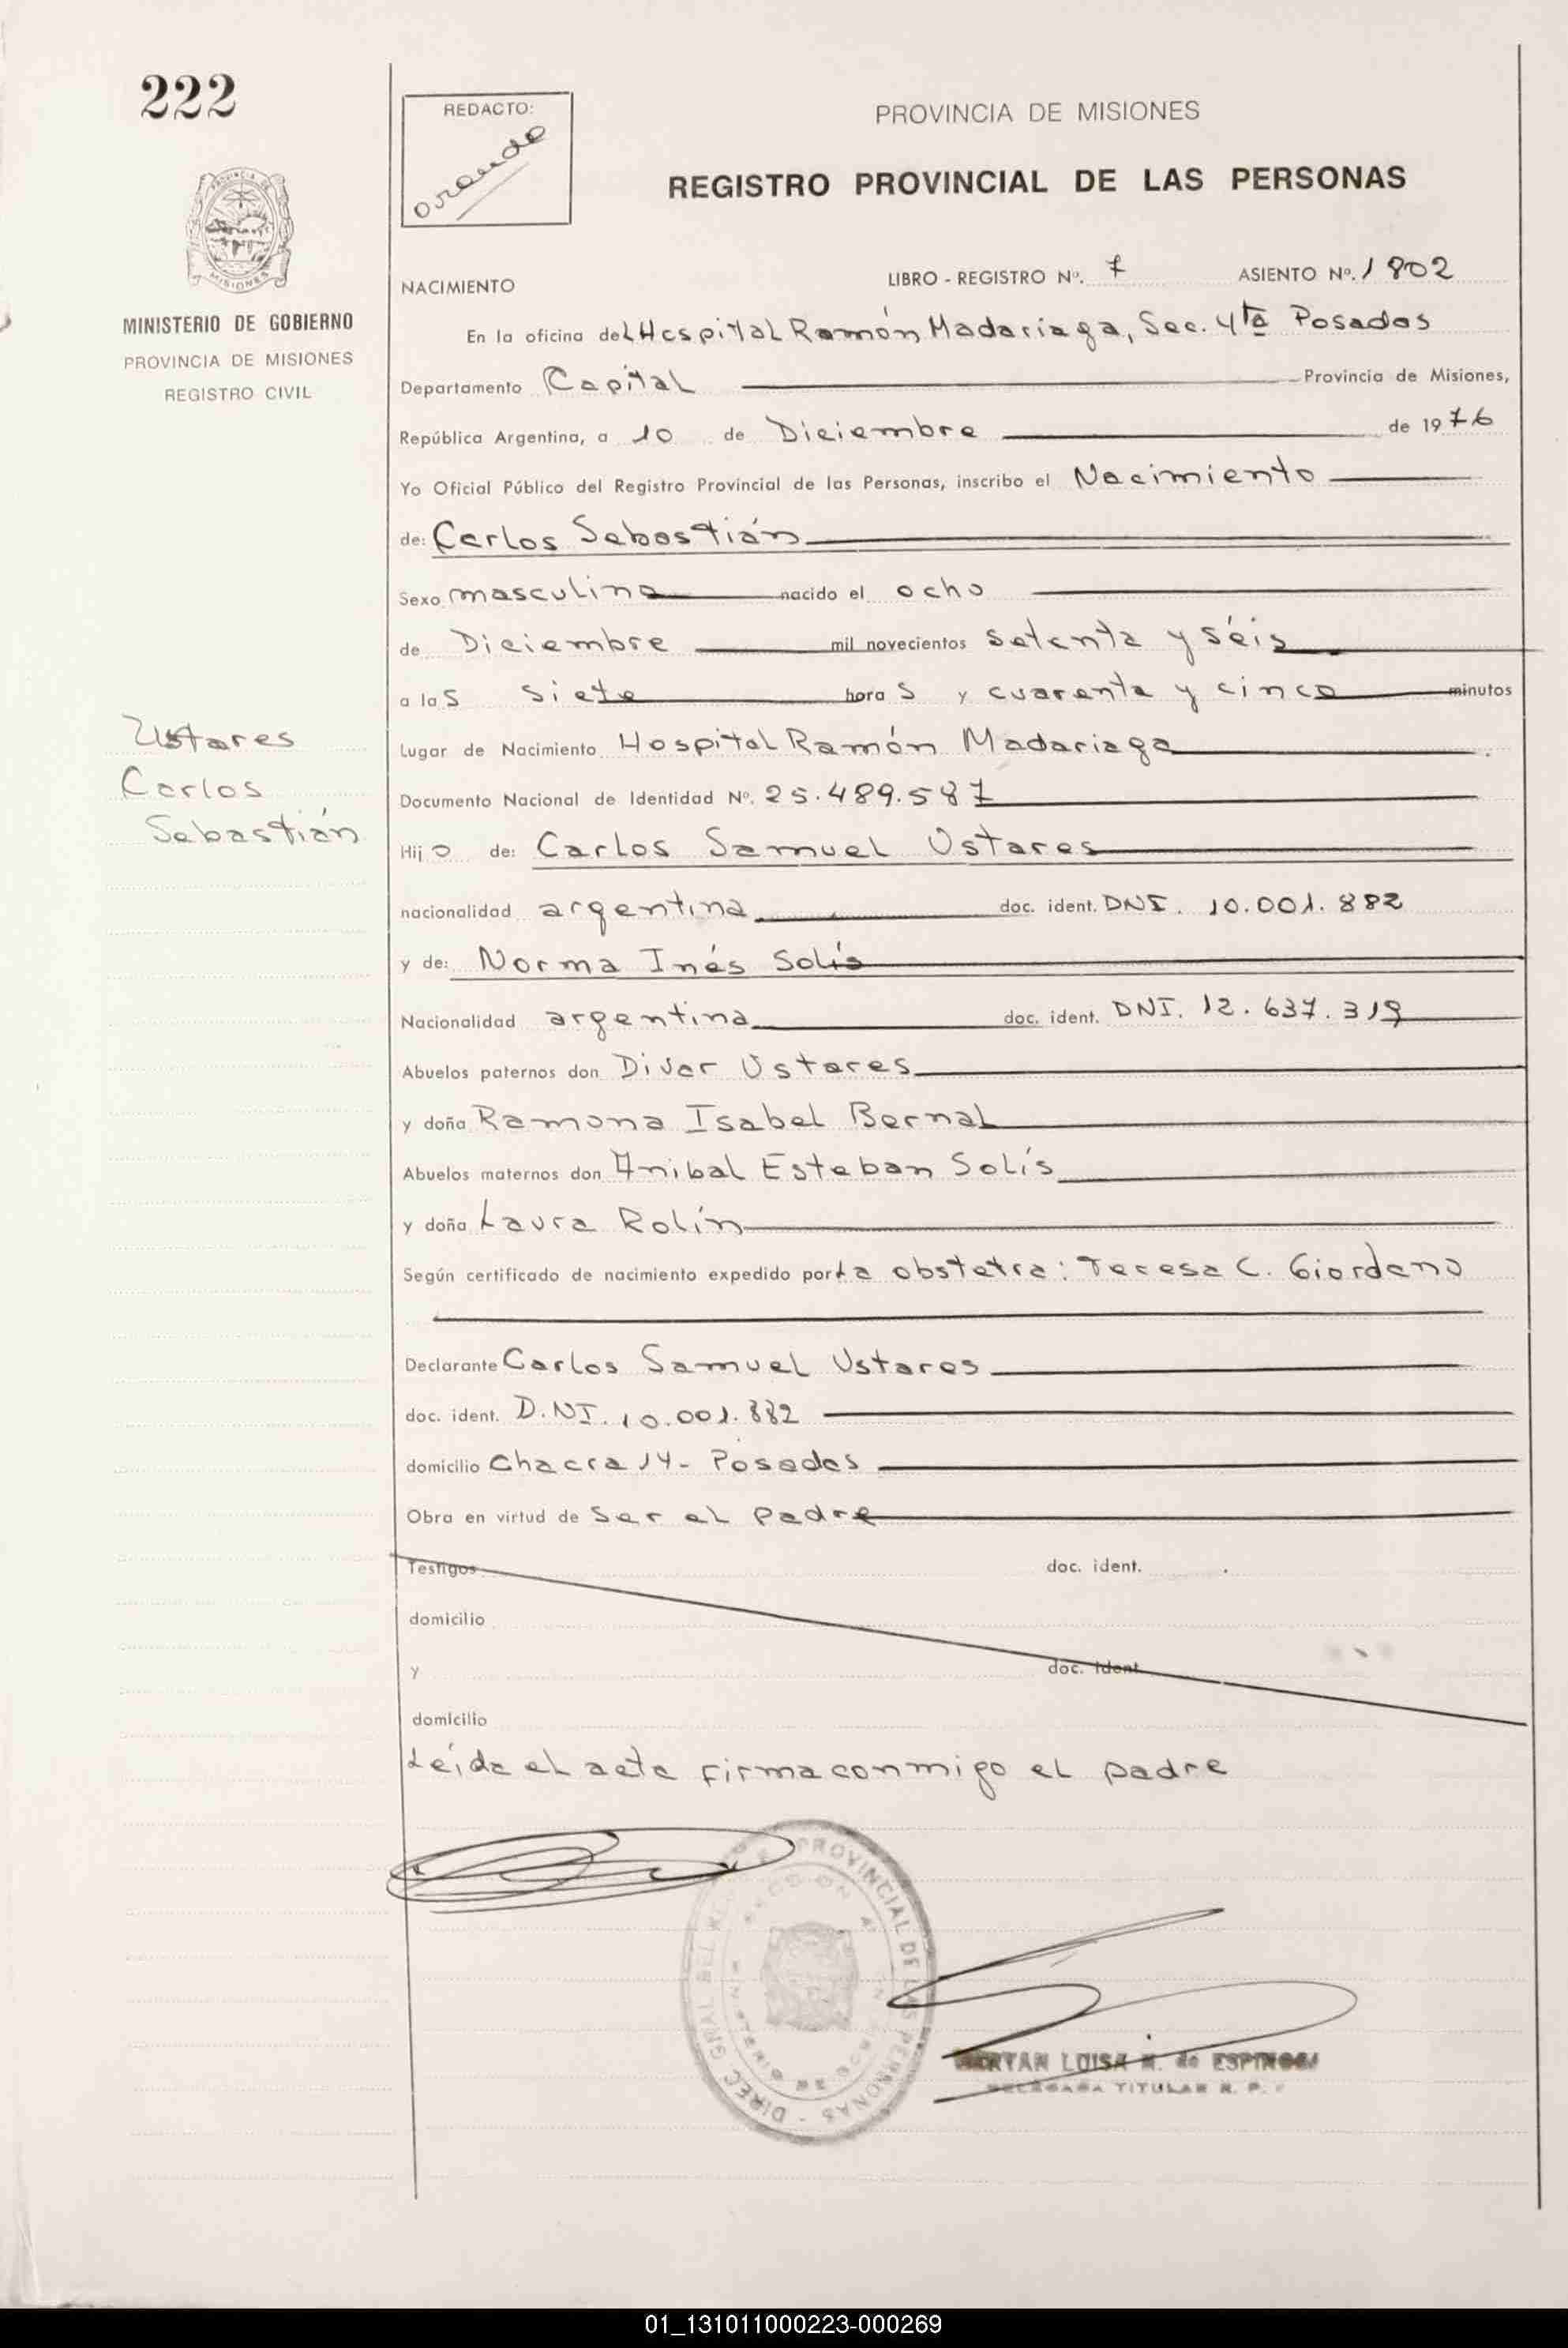 222
REDACTO:
PROVINCIA DE MISIONES
REGISTRO PROVINCIAL DE LAS PERSONAS
MINISTERIO DE GOBIERNO
PROVINCIA DE MISIONES
REGISTRO CIVIL
NACIMIENTO LIBRO - REGISTRO Nº. 7 ASIENTO Nº. 1802
En la oficina del Hospital Ramón Madariaga, Sec. 4ta Posadas
Departamento Capital Provincia de Misiones,
República Argentina, a 10 de Diciembre de 1976
Yo Oficial Público del Registro Provincial de las Personas, inscribo el Nacimiento
de: Carlos Sebastián
Sexo masculino nacido el ocho
de Diciembre mil novecientos setenta y séis
a las siete horas y cuarenta y cinco minutos
Ustares
Carlos
Sebastián
Lugar de Nacimiento Hospital Ramón Madariaga
Documento Nacional de Identidad Nº. 25.489.587
Hijo de: Carlos Samuel Ustares
nacionalidad argentina doc. ident. DNI. 10.001.882
y de: Norma Inés Solís
Nacionalidad argentina doc. ident. DNI. 12.637.319
Abuelos paternos don Divar Ustares
y doña Ramona Isabel Bernal
Abuelos maternos don Anibal Esteban Solís
y doña Laura Rolín
Según certificado de nacimiento expedido por La obstetra: Teresa C. Giordano
Declarante Carlos Samuel Ustares
doc. ident. D.NI. 10.001.882
domicilio Chacra 14- Posadas
Obra en virtud de ser el padre
Testigos doc. ident.
domicilio
y doc. ident
domicilio
Leída el acta firma conmigo el padre
DIREC GRAL DEL PROVINCIAL DE LAS PERSONAS
LUISA de ESPINOSA
TITULAR R. P.
01_131011000223-000269